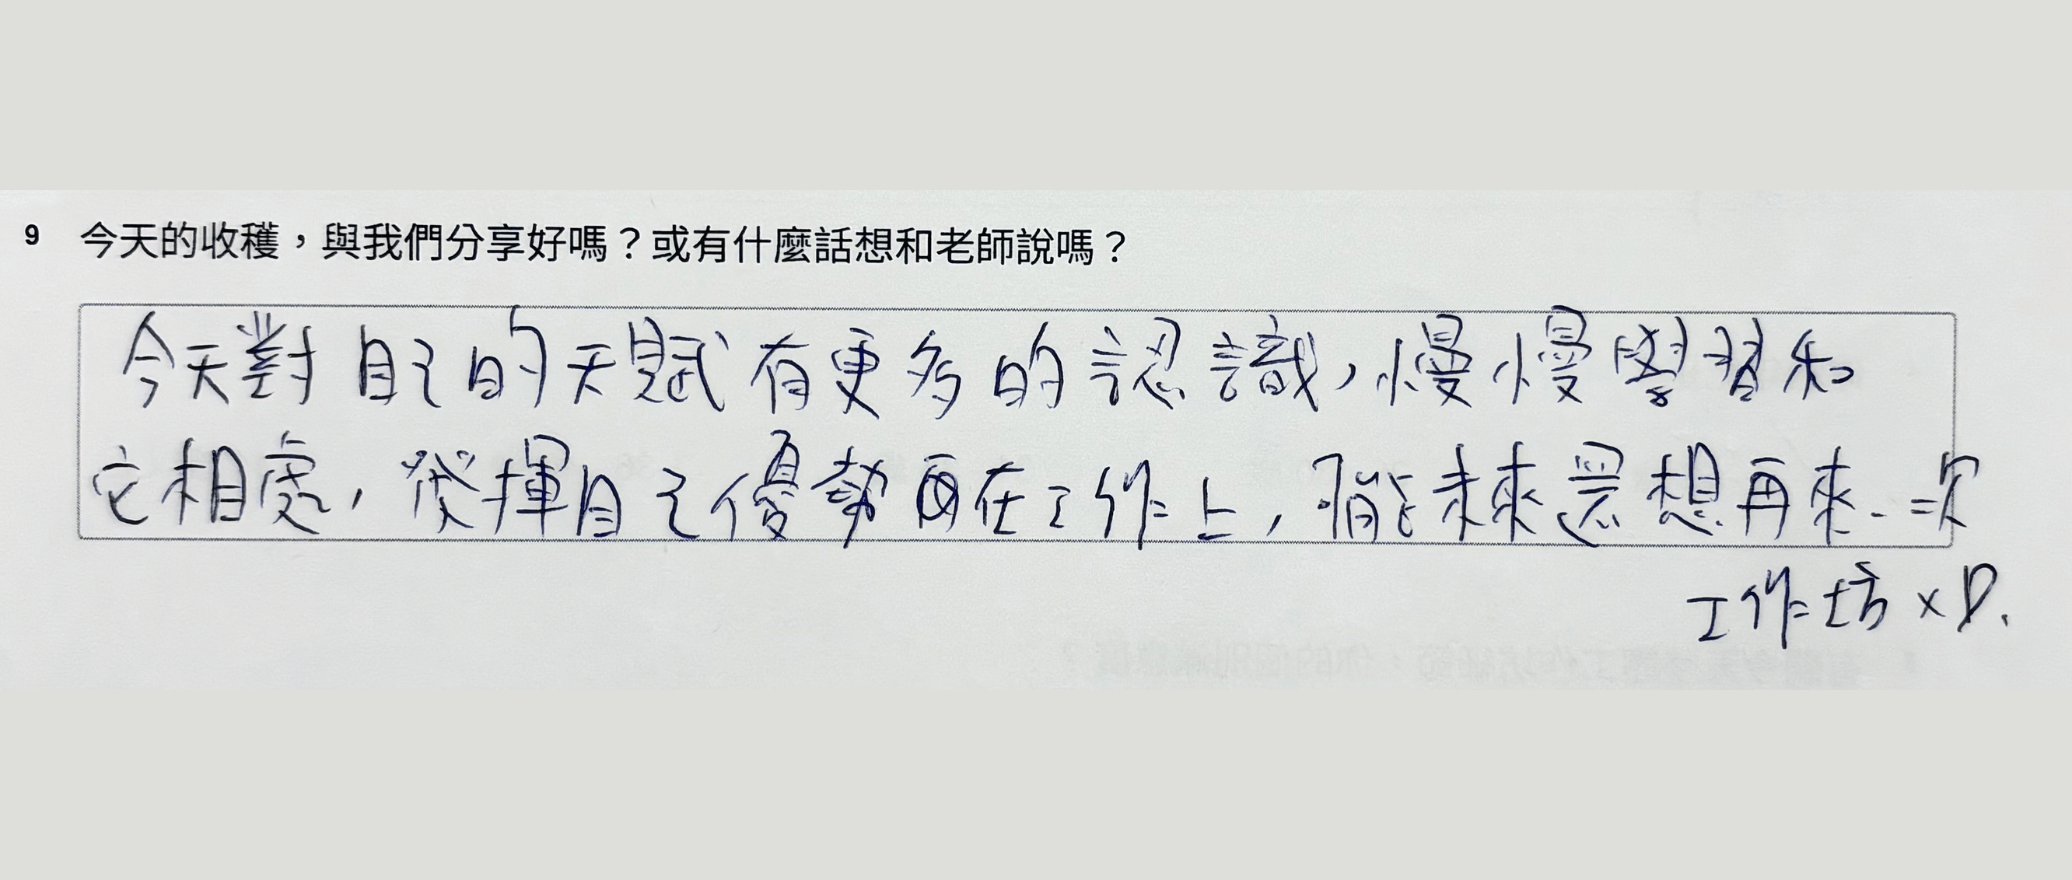 9 今天的收穫，與我們分享好嗎？或有什麼話想和老師說嗎？
今天對自己的天賦有更多的認識，慢慢學習和
它相處，發揮自己優勢 在工作上，未來還想再來一次
工作坊 XD.